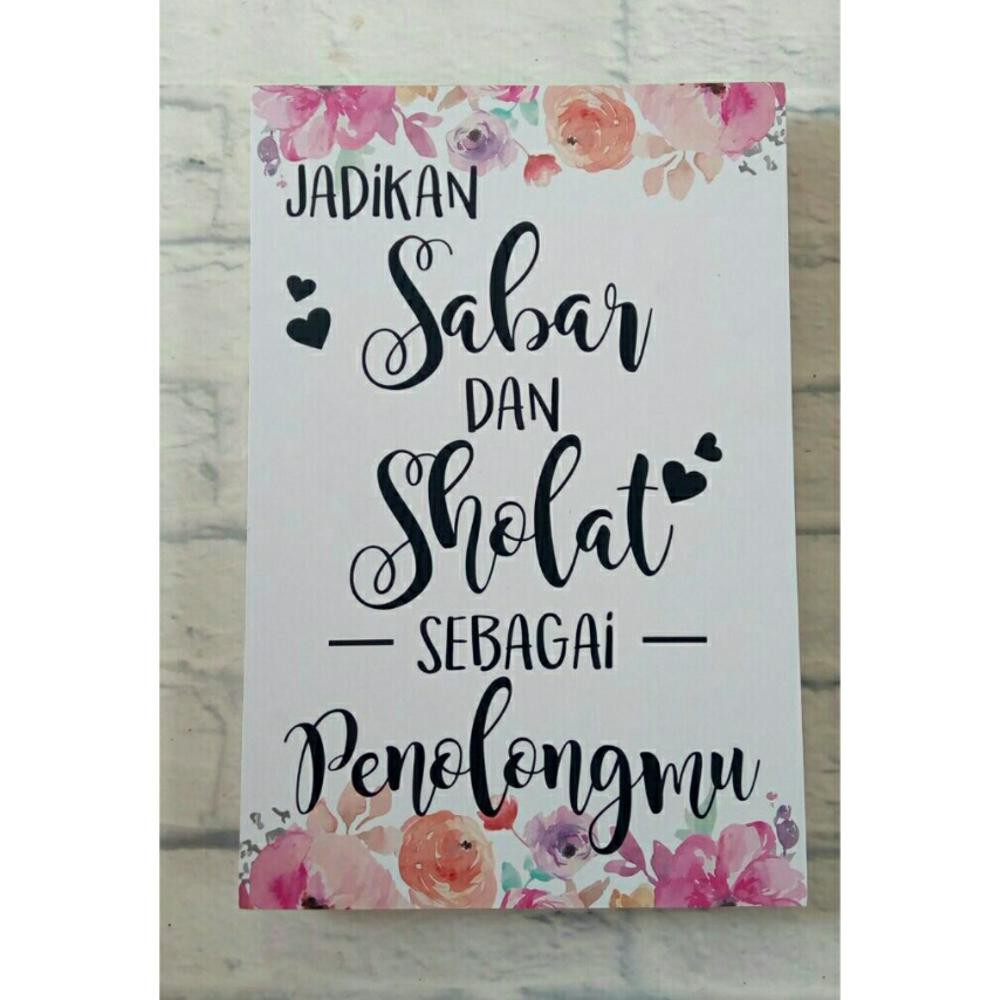 JADiKAN
Sabar
DAN
Sholat
— SEBAGAi —
Penolongmu